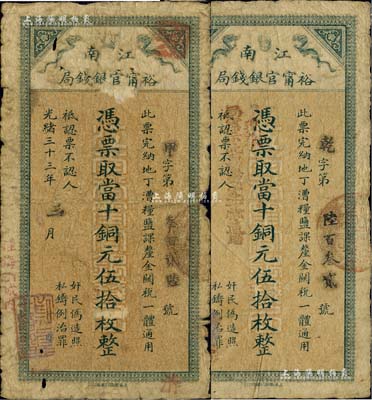 江南
裕甯官銀錢局
此票完納地丁漕糧鹽課釐金關稅一體適用
甲字第 號
憑票取當十銅元伍拾枚整
祗認票不認人
光緒三十三年 三 月
奸民偽造照
私鑄例治罪
江南
裕甯官銀錢局
此票完納地丁漕糧鹽課釐金關稅一體適用
乾字第 陸百叁貳 號
憑票取當十銅元伍拾枚整
祗認票不認人
奸民偽造照
私鑄例治罪